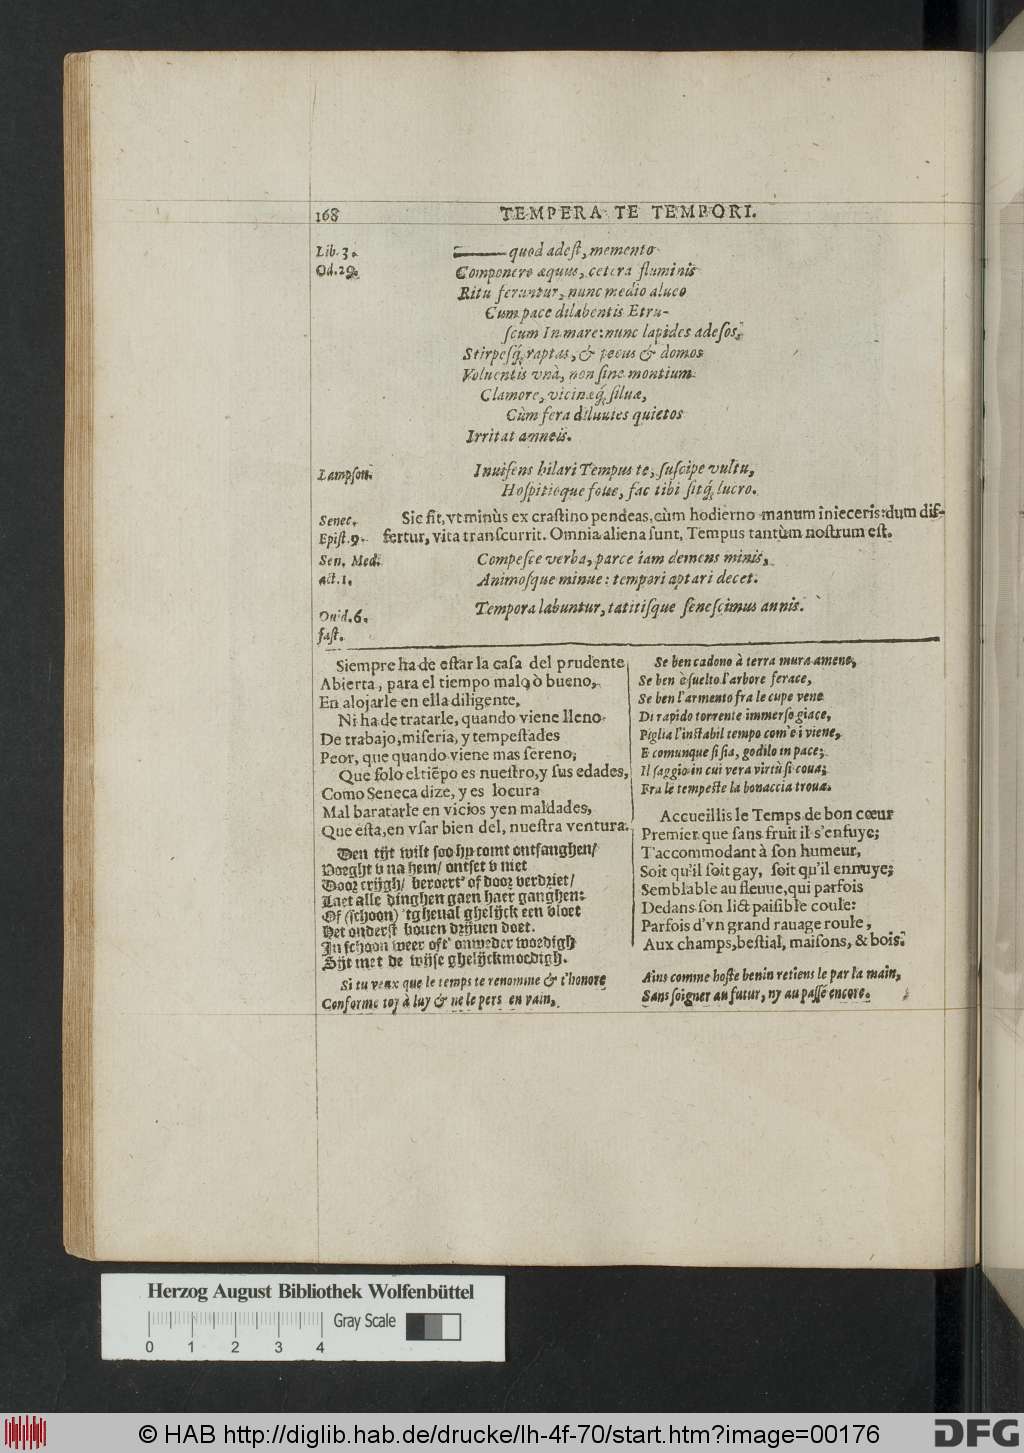 168
TEMPERA TE TEMPORI.
Lib. 3.
Od. 29.
quod adest, memento
Componere æquus, cetera fluminis
Ritu feruntur, nunc medio alueo
Cum pace dilabentis Etru-
scum In mare: nunc lapides adesos,
Stirpesq́; raptas, & pecus & domos
Voluentis vnà, non sine montium
Clamore, vicinæq́; siluæ,
Cùm fera diluuies quietos
Irritat anneis.
Lampson.
Inuisens hilari Tempus te, suscipe vultu,
Hospitioque foue, fac tibi sitq́; lucro.
Senec.
Epist. 9.
Sic fit, vt minùs ex crastino pendeas, cùm hodierno manum inieceris: dum dif-
fertur, vita transcurrit. Omnia aliena sunt, Tempus tantùm nostrum est.
Sen. Med.
act. 1.
Compesce verba, parce iam demens minis,
Animosque minue: tempori aptari decet.
Ouid. 6.
fast.
Tempora labuntur, tatitisque senescimus annis.
Siempre ha de estar la casa del prudente
Abierta, para el tiempo malo, ò bueno,
En alojarle en ella diligente,
Ni ha de tratarle, quando viene lleno
De trabajo, miseria, y tempestades
Peor, que quando viene mas sereno;
Que solo el tiẽpo es nuestro, y sus edades,
Como Seneca dize, y es locura
Mal baratarle en vicios y en maldades,
Que esta, en vsar bien del, nuestra ventura.
Den tijt wilt soo hy comt ontfanghen/
Voeght v na hem/ ontset v niet
Door crijgh/ beroert' of door verdriet/
Laet alle dinghen gaen haer ganghen:
Of (schoon) 'tgheual ghelijck een vloet
Het onderst bouen drijuen doet.
In schoon weer oft' onweder woedigh
Sijt met de wijse ghelijckmoedigh.
Si tu veux que le temps te renomme & t'honore
Conforme toy à luy & ne le pers en vain,
Se ben cadono à terra mura amene,
Se ben è suelto l'arbore ferace,
Se ben l'armento fra le cupe vene
Di rapido torrente immerso giace,
Piglia l'instabil tempo com'e i viene,
E comunque si sia, godilo in pace;
Il saggio in cui vera virtù si coua;
Fra le tempeste la bonaccia troua.
Accueillis le Temps de bon cœur
Premier que sans fruit il s'enfuye;
T'accommodant à son humeur,
Soit qu'il soit gay, soit qu'il ennuye;
Semblable au fleuue, qui parfois
Dedans son lict paisible coule:
Parfois d'vn grand rauage roule,
Aux champs, bestial, maisons, & bois.
Ains comme hoste benin retiens le par la main,
Sans soigner au futur, ny au passé encore.
Herzog August Bibliothek Wolfenbüttel
Gray Scale
0 1 2 3 4
© HAB http://diglib.hab.de/drucke/lh-4f-70/start.htm?image=00176
DFG